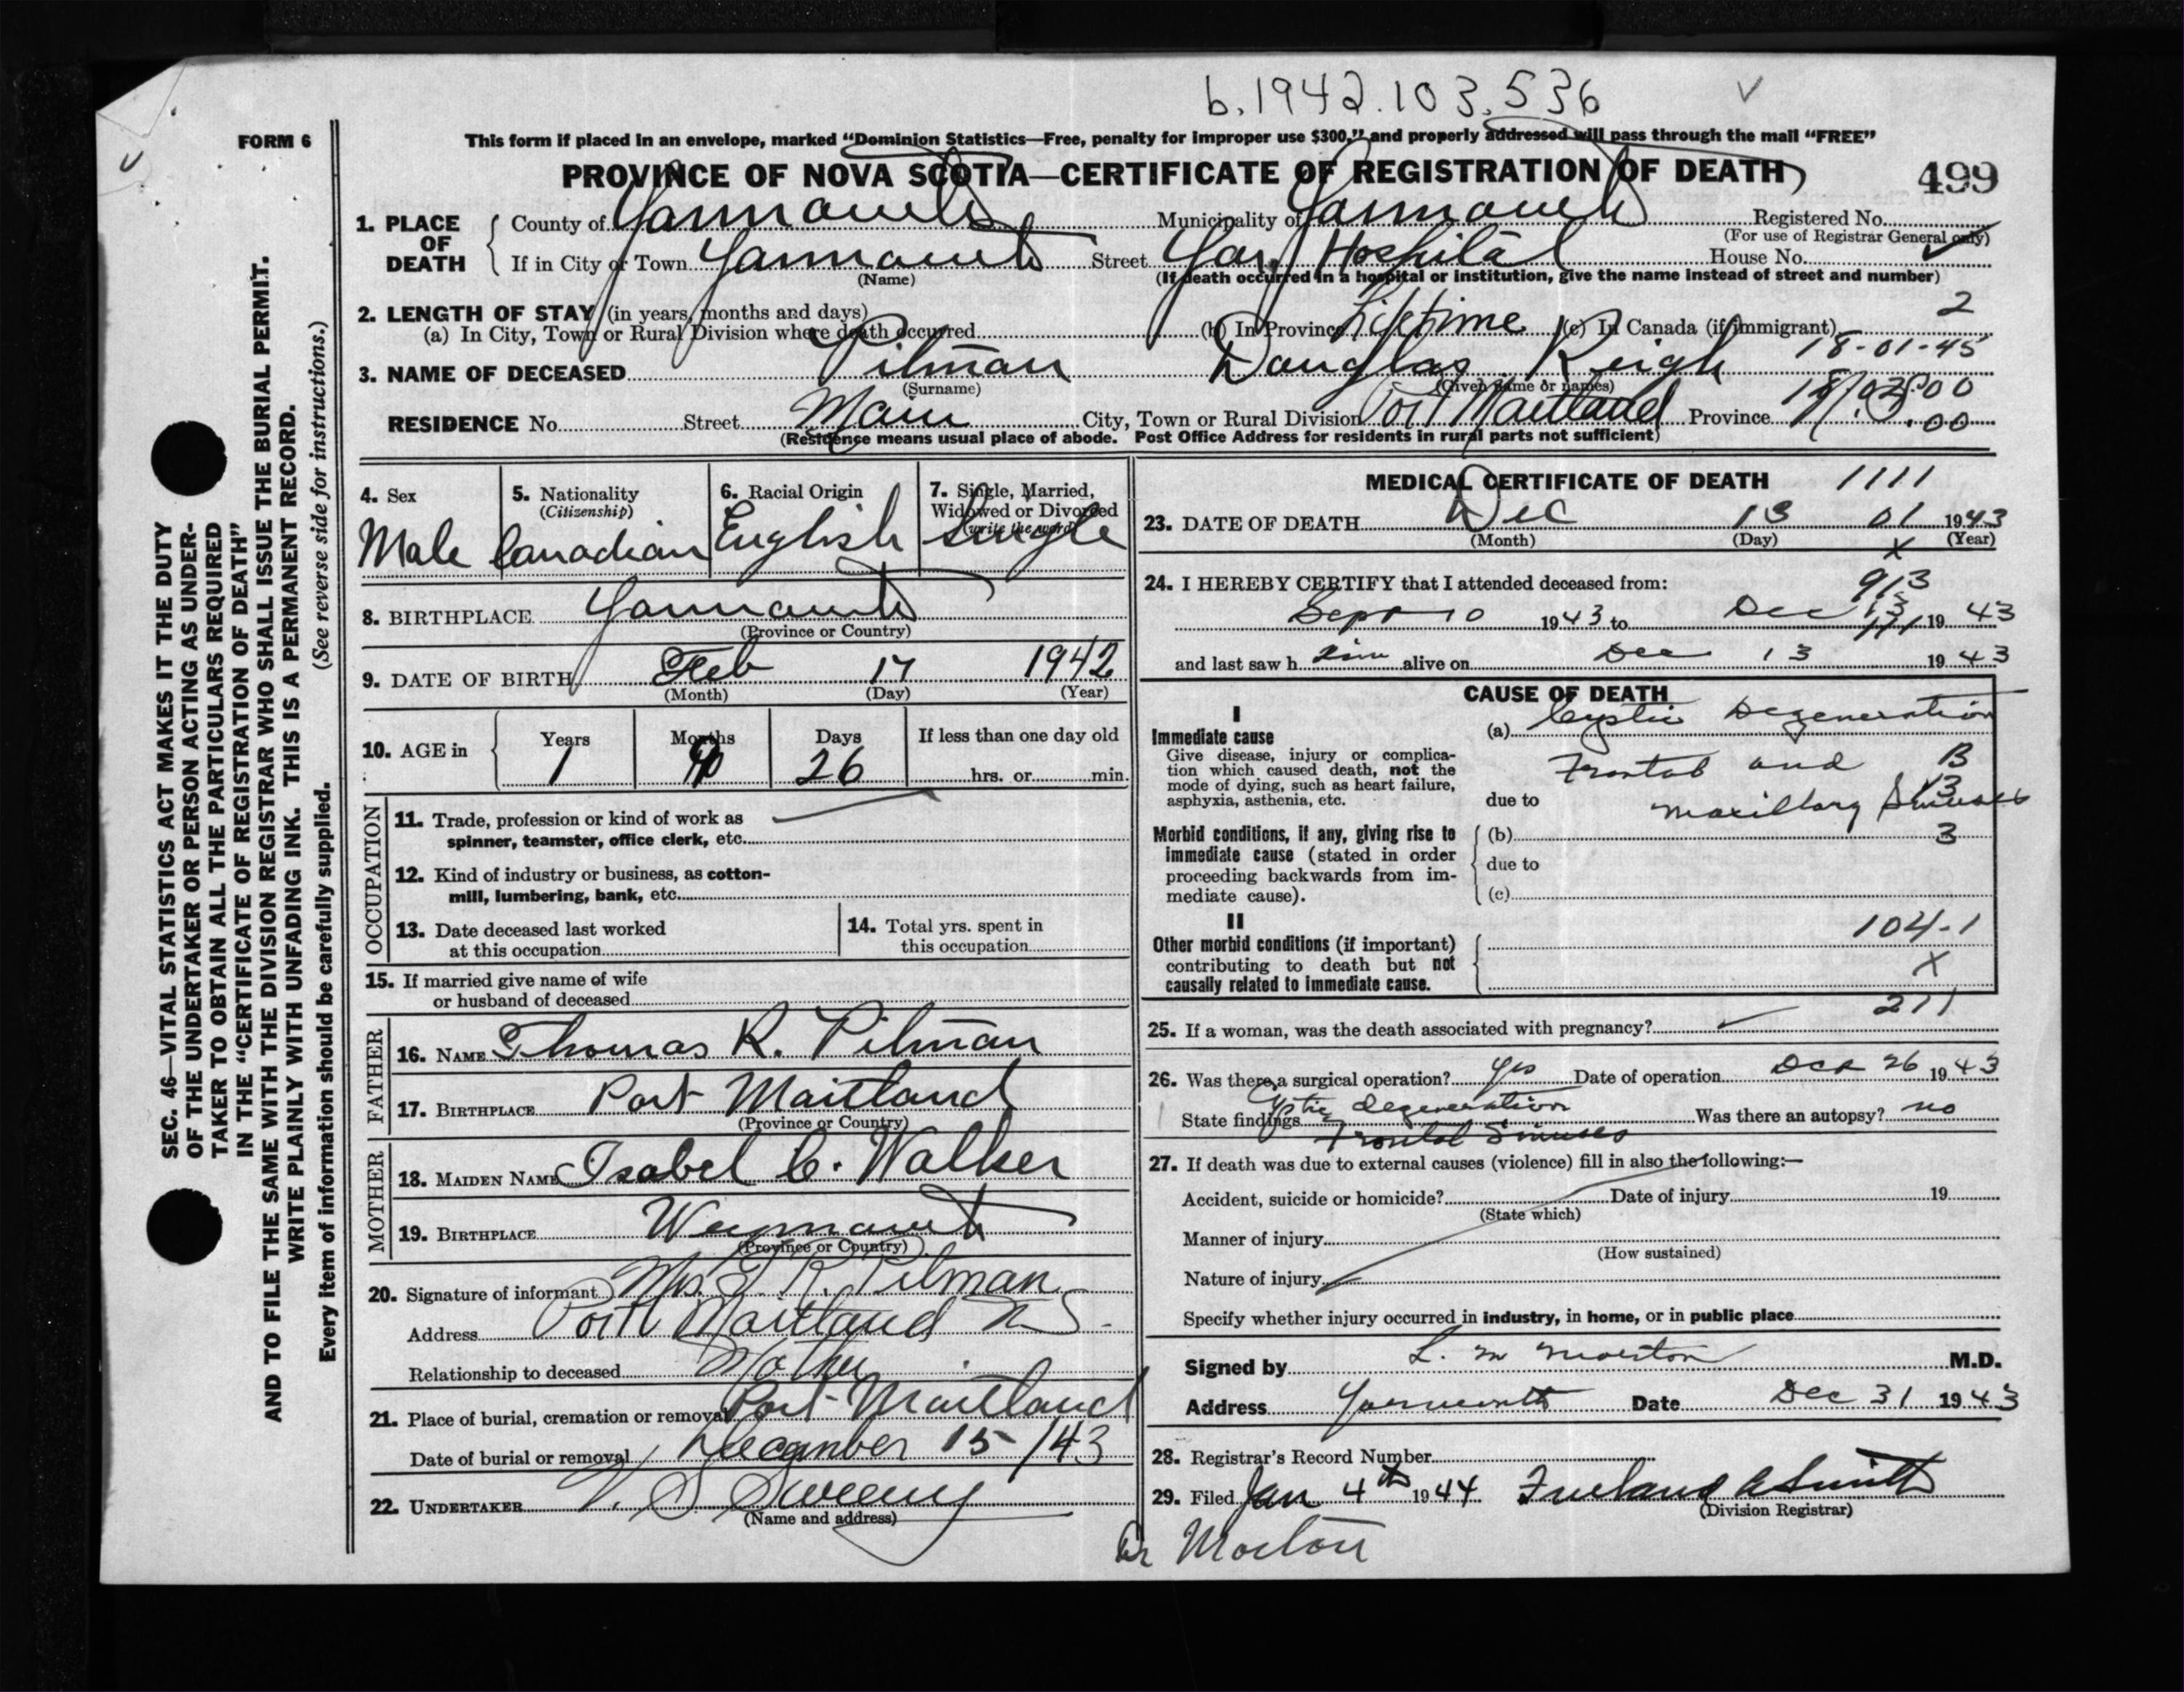 b. 1942. 103.536
FORM 6
This form if placed in an envelope, marked “Dominion Statistics—Free, penalty for improper use $300,” and properly addressed will pass through the mail “FREE”
PROVINCE OF NOVA SCOTIA—CERTIFICATE OF REGISTRATION OF DEATH
499
1. PLACE OF DEATH
County of Yarmouth Municipality of Yarmouth Registered No.
(For use of Registrar General only)
If in City or Town Yarmouth Street Yar. Hospital House No.
(Name) (If death occurred in a hospital or institution, give the name instead of street and number)
2. LENGTH OF STAY (in years, months and days) 2
(a) In City, Town or Rural Division where death occurred (b) In Province Lifetime (c) In Canada (if immigrant)
18-01-45
3. NAME OF DECEASED Pitman Douglas Keigh
(Surname) (Given name or names)
RESIDENCE No. Street Main City, Town or Rural Division Port Maitland Province
(Residence means usual place of abode. Post Office Address for residents in rural parts not sufficient)
SEC. 46—VITAL STATISTICS ACT MAKES IT THE DUTY
OF THE UNDERTAKER OR PERSON ACTING AS UNDER-
TAKER TO OBTAIN ALL THE PARTICULARS REQUIRED
IN THE “CERTIFICATE OF REGISTRATION OF DEATH”
AND TO FILE THE SAME WITH THE DIVISION REGISTRAR WHO SHALL ISSUE THE BURIAL PERMIT.
WRITE PLAINLY WITH UNFADING INK. THIS IS A PERMANENT RECORD.
Every item of information should be carefully supplied. (See reverse side for instructions.)
4. Sex 5. Nationality 6. Racial Origin 7. Single, Married,
(Citizenship) Widowed or Divorced
(write the word)
Male Canadian English Single
8. BIRTHPLACE Yarmouth
(Province or Country)
9. DATE OF BIRTH Feb 17 1942
(Month) (Day) (Year)
10. AGE in Years Months Days If less than one day old
1 26 hrs. or min.
OCCUPATION
11. Trade, profession or kind of work as
spinner, teamster, office clerk, etc.
12. Kind of industry or business, as cotton-
mill, lumbering, bank, etc.
13. Date deceased last worked 14. Total yrs. spent in
at this occupation this occupation
15. If married give name of wife
or husband of deceased
FATHER
16. NAME Thomas R. Pitman
17. BIRTHPLACE Port Maitland
(Province or Country)
MOTHER
18. MAIDEN NAME Isabel C. Walker
19. BIRTHPLACE Weymouth
(Province or Country)
20. Signature of informant Mrs. T. R. Pitman
Address Port Maitland N.S.
Relationship to deceased Mother
21. Place of burial, cremation or removal Port Maitland
Date of burial or removal December 15/43
22. UNDERTAKER V. S. Sweeny
(Name and address)
MEDICAL CERTIFICATE OF DEATH 1111
23. DATE OF DEATH Dec 13 01 1943
(Month) (Day) (Year)
X
24. I HEREBY CERTIFY that I attended deceased from: 913
Sept 10 1943 to Dec 13 1943
and last saw him alive on Dec 13 1943
CAUSE OF DEATH
I
Immediate cause
Give disease, injury or complica-
tion which caused death, not the
mode of dying, such as heart failure,
asphyxia, asthenia, etc.
(a) Cystic Degeneration
Frontal and B
due to maxillary Sinuses
Morbid conditions, if any, giving rise to
immediate cause (stated in order
proceeding backwards from im-
mediate cause).
(b) 3
due to
(c)
II
Other morbid conditions (if important)
contributing to death but not
causally related to immediate cause.
104-1
X
211
25. If a woman, was the death associated with pregnancy?
26. Was there a surgical operation? yes Date of operation 26 1943
State findings Cystic degeneration Was there an autopsy? no
Frontal Sinuses
27. If death was due to external causes (violence) fill in also the following:—
Accident, suicide or homicide? Date of injury 19
(State which)
Manner of injury
(How sustained)
Nature of injury
Specify whether injury occurred in industry, in home, or in public place
Signed by L. M Morton M.D.
Address Yarmouth Date Dec 31 1943
28. Registrar's Record Number
29. Filed Jan 4th 1944 Freeland A Smith
(Division Registrar)
Dr Morton